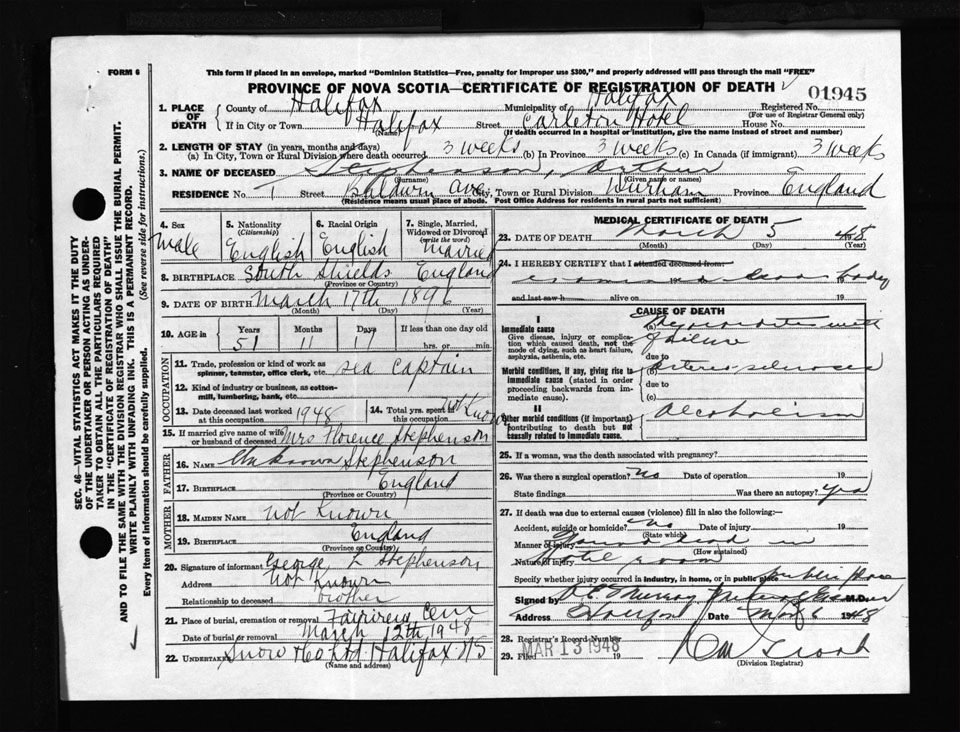 FORM 6
This form if placed in an envelope, marked "Dominion Statistics—Free, penalty for improper use $300," and properly addressed will pass through the mail "FREE"
PROVINCE OF NOVA SCOTIA—CERTIFICATE OF REGISTRATION OF DEATH
01945
1. PLACE OF DEATH
County of Halifax Municipality of Halifax Registered No.
(For use of Registrar General only)
If in City or Town Halifax Street Carleton Hotel House No.
(Name) (If death occurred in a hospital or institution, give the name instead of street and number)
2. LENGTH OF STAY (in years, months and days)
(a) In City, Town or Rural Division where death occurred 3 weeks (b) In Province 3 weeks (c) In Canada (if immigrant) 3 weeks
3. NAME OF DECEASED Stephenson, Arthur
(Surname) (Given name or names)
RESIDENCE No. 1 Street Baldwin Ave City, Town or Rural Division Durham Province England
(Residence means usual place of abode. Post Office Address for residents in rural parts not sufficient)
4. Sex
Male
5. Nationality
(Citizenship)
English
6. Racial Origin
English
7. Single, Married, Widowed or Divorced
(write the word)
Married
8. BIRTHPLACE South Shields England
(Province or Country)
9. DATE OF BIRTH March 17th 1896
(Month) (Day) (Year)
10. AGE in Years Months Days If less than one day old
51 11 17 hrs. or min.
OCCUPATION
11. Trade, profession or kind of work as spinner, teamster, office clerk, etc. sea captain
12. Kind of industry or business, as cotton-mill, lumbering, bank, etc.
13. Date deceased last worked at this occupation 1948
14. Total yrs. spent in this occupation Not Known
15. If married give name of wife or husband of deceased Mrs Florence Stephenson
FATHER
16. NAME Unknown Stephenson
17. BIRTHPLACE England
(Province or Country)
MOTHER
18. MAIDEN NAME Not Known
19. BIRTHPLACE England
(Province or Country)
20. Signature of informant George L Stephenson
Address Not Known
Relationship to deceased brother
21. Place of burial, cremation or removal Fairview Cem
Date of burial or removal March 12th 1948
22. Undertaker Snow Halifax NS
(Name and address)
MEDICAL CERTIFICATE OF DEATH
23. DATE OF DEATH March 5 1948
(Month) (Day) (Year)
24. I HEREBY CERTIFY that I attended deceased from:
19 body
and last saw h alive on 19
CAUSE OF DEATH
I
Immediate cause
Give disease, injury or complication which caused death, not the mode of dying, such as heart failure, asphyxia, asthenia, etc.
(a) Myocarditis with failure
due to
Morbid conditions, if any, giving rise to immediate cause (stated in order proceeding backwards from immediate cause).
(b) Arterio-sclerosis
due to
(c)
II
Other morbid conditions (if important) contributing to death but not causally related to immediate cause.
Alcoholism
25. If a woman, was the death associated with pregnancy?
26. Was there a surgical operation? no Date of operation 19
State findings Was there an autopsy? yes
27. If death was due to external causes (violence) fill in also the following:
Accident, suicide or homicide? no Date of injury 19
(State which)
Manner of injury Found dead in
(How sustained)
Nature of injury hotel room
Specify whether injury occurred in industry, in home, or in public place public place
Signed by Murray Medical Examiner M.D.
Address Halifax Date Mar 6 1948
28. Registrar's Record Number
29. Filed MAR 13 1948 19
(Division Registrar)
SEC. 46—VITAL STATISTICS ACT MAKES IT THE DUTY
OF THE UNDERTAKER OR PERSON ACTING AS UNDER-
TAKER TO OBTAIN ALL THE PARTICULARS REQUIRED
IN THE "CERTIFICATE OF REGISTRATION OF DEATH"
AND TO FILE THE SAME WITH THE DIVISION REGISTRAR WHO SHALL ISSUE THE BURIAL PERMIT.
WRITE PLAINLY WITH UNFADING INK. THIS IS A PERMANENT RECORD.
Every item of information should be carefully supplied. (See reverse side for instructions.)